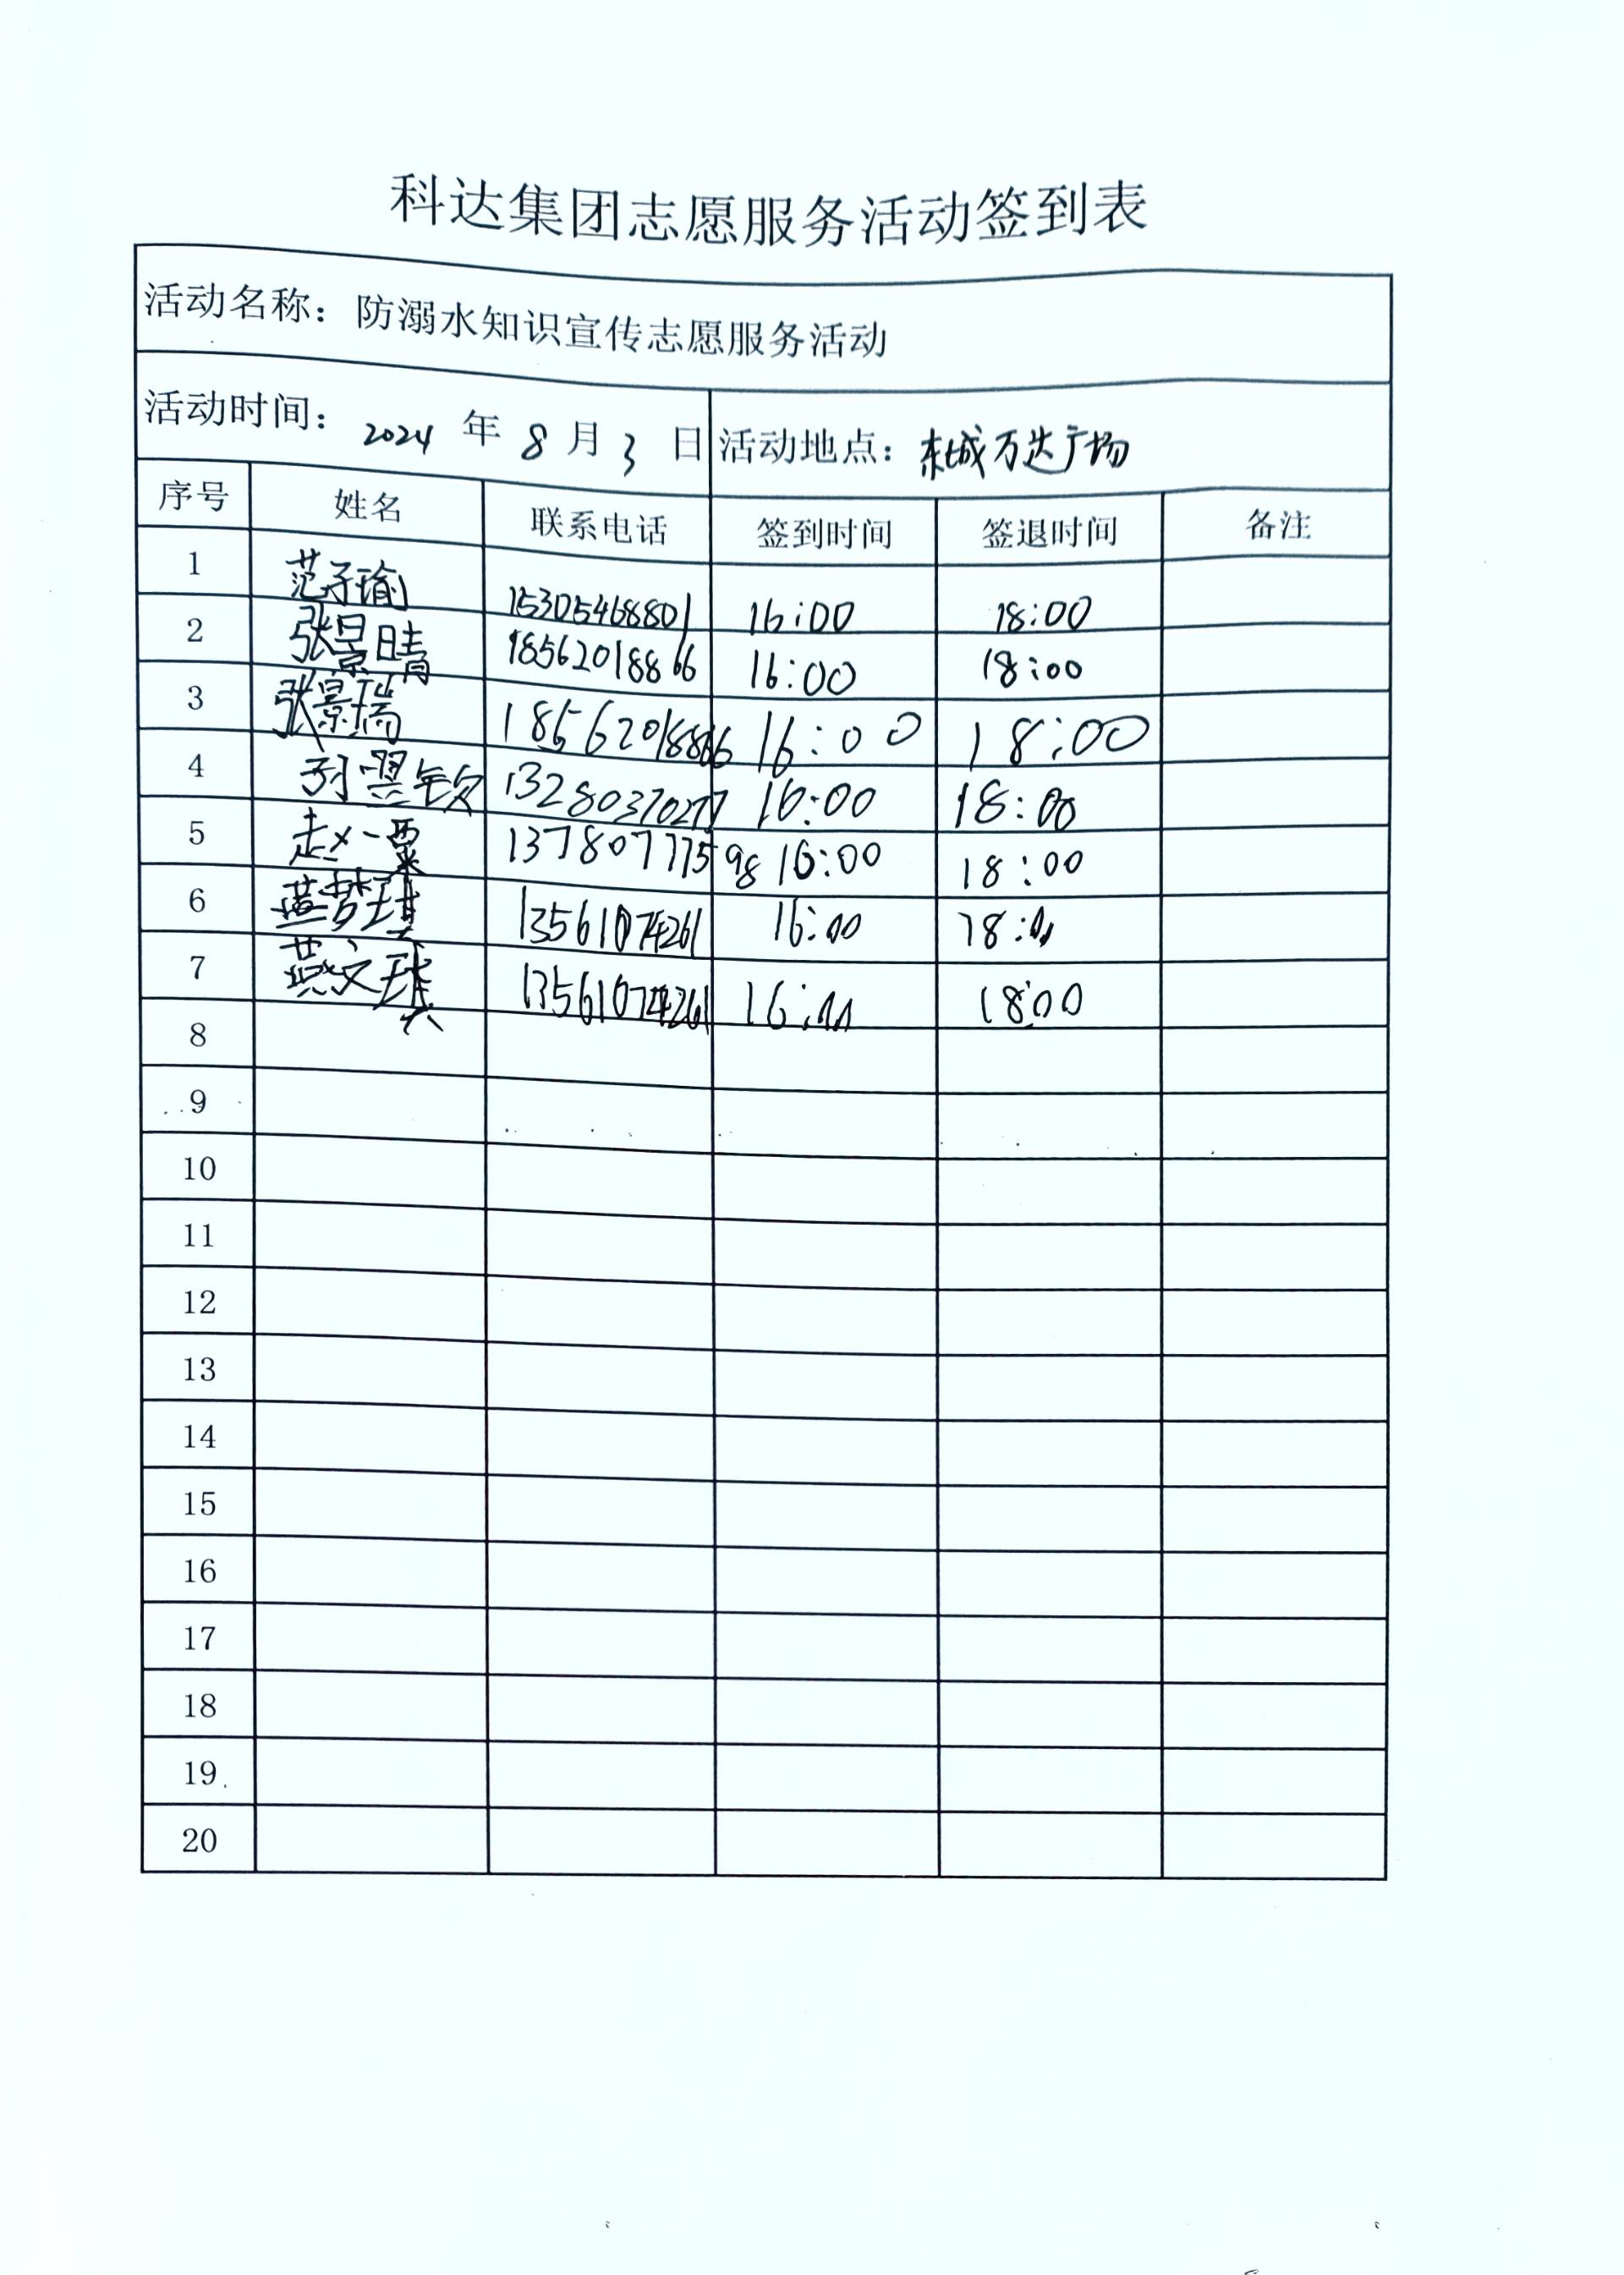 科达集团志愿服务活动签到表
活动名称：防溺水知识宣传志愿服务活动
活动时间：2024 年 8 月 3 日 活动地点：东城万达广场
序号 姓名 联系电话 签到时间 签退时间 备注
1 范子瑜 15305468801 16:00 18:00
2 张景晴 18562018866 16:00 18:00
3 张景瑞 18562018866 16:00 18:00
4 13280370277 16:00 18:00
5 赵一粟 16:00 18:00
6 燕梦琪 13561074261 16:00 18:00
7 燕文琪 13561074261 16:00 18:00
8
9
10
11
12
13
14
15
16
17
18
19
20